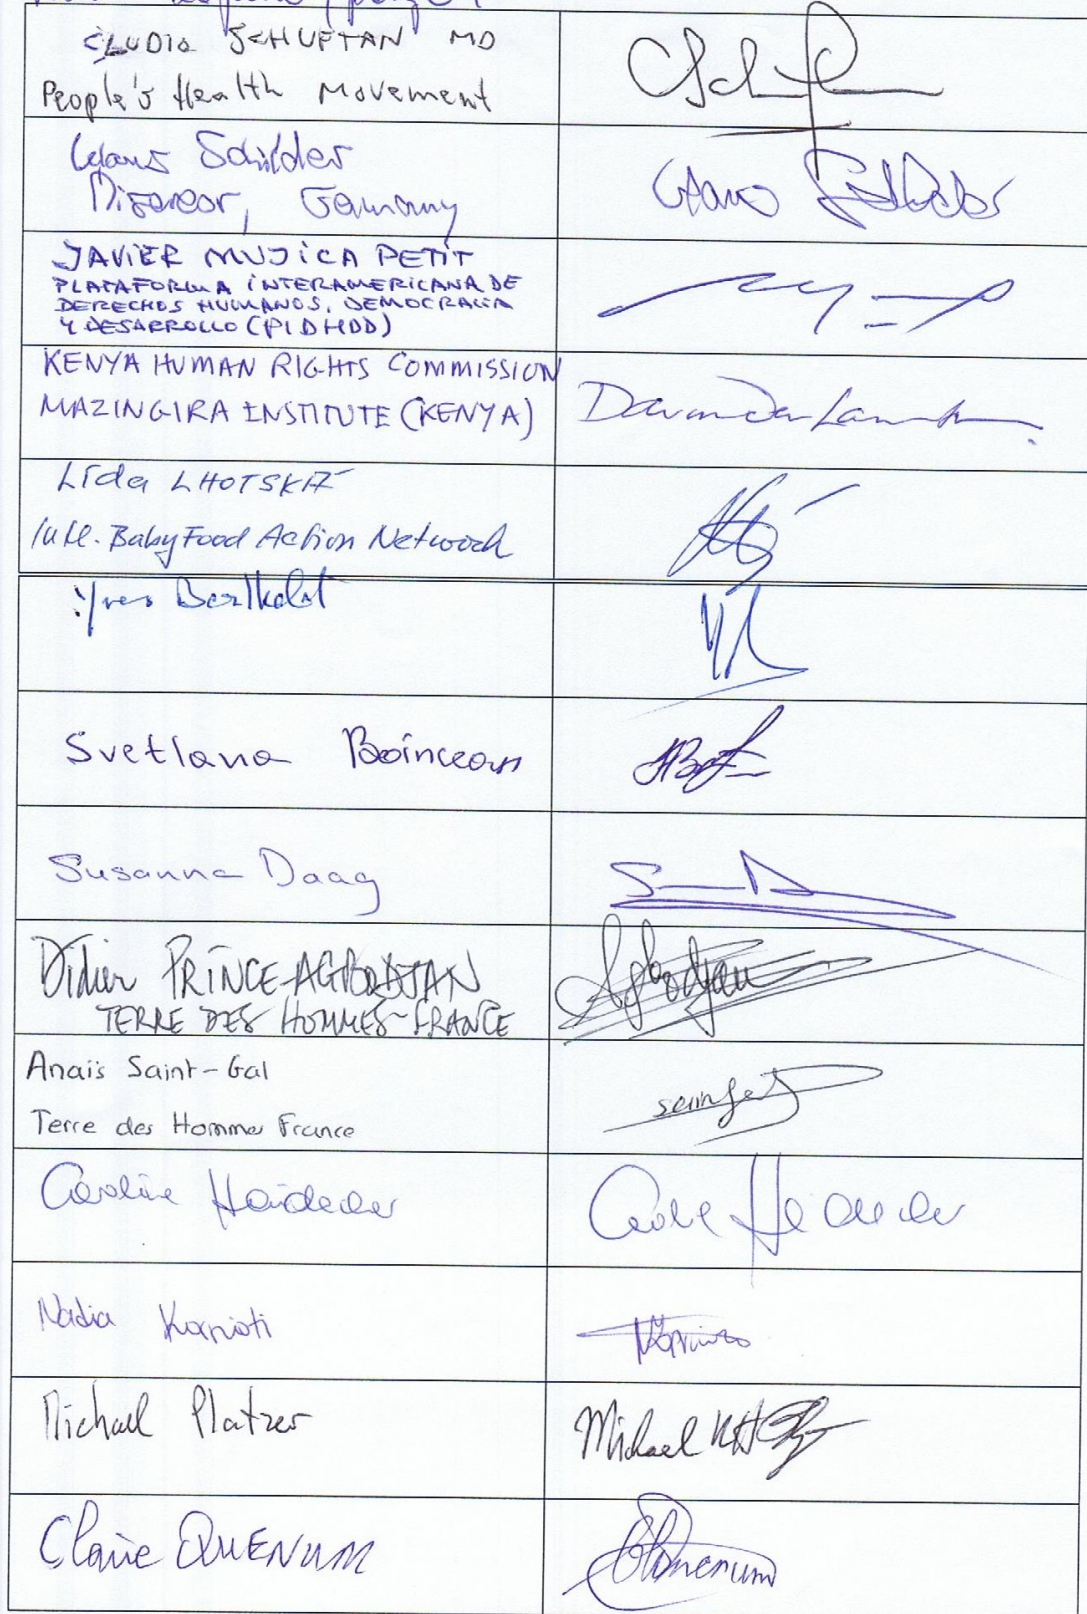 CLUDIO SCHUFTAN MD
People's Health Movement
Klaus Schilder
Misereor, Germany
JAVIER MUJICA PETIT
PLATAFORMA INTERAMERICANA DE
DERECHOS HUMANOS, DEMOCRACIA
Y DESARROLLO (PIDHDD)
KENYA HUMAN RIGHTS COMMISSION
MAZINGIRA INSTITUTE (KENYA)
Davinder Lamba
Lida LHOTSKÁ
Intl. Baby Food Action Network
Yves Berthelot
Svetlana Boincean
Susanna Daag
Didier PRINCE-AGBODJAN
TERRE DES HOMMES-FRANCE
Agbodjan
Anaïs Saint-Gal
Terre des Hommes France
Caroline Haidacher
Nadia
Michael Platzer
Michael
Claire QUENUM